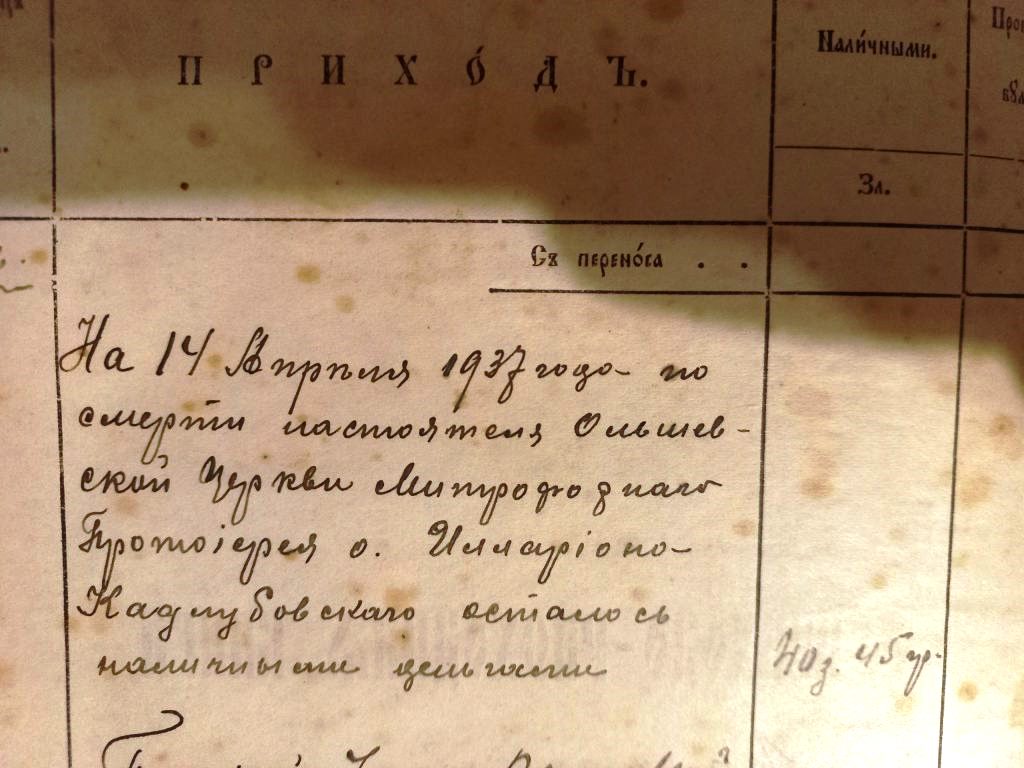 ПРИХО́ДЪ.
Нали́чными.
Зл.
Съ перено́са . .
На 14 Апрѣля 1937 года по
смерти настоятеля Ольшев-
ской Церкви Митрофорнаго
Протоіерея о. Илларіона
Кадлубовскаго осталось
наличными деньгами
40 з. 45 гр.